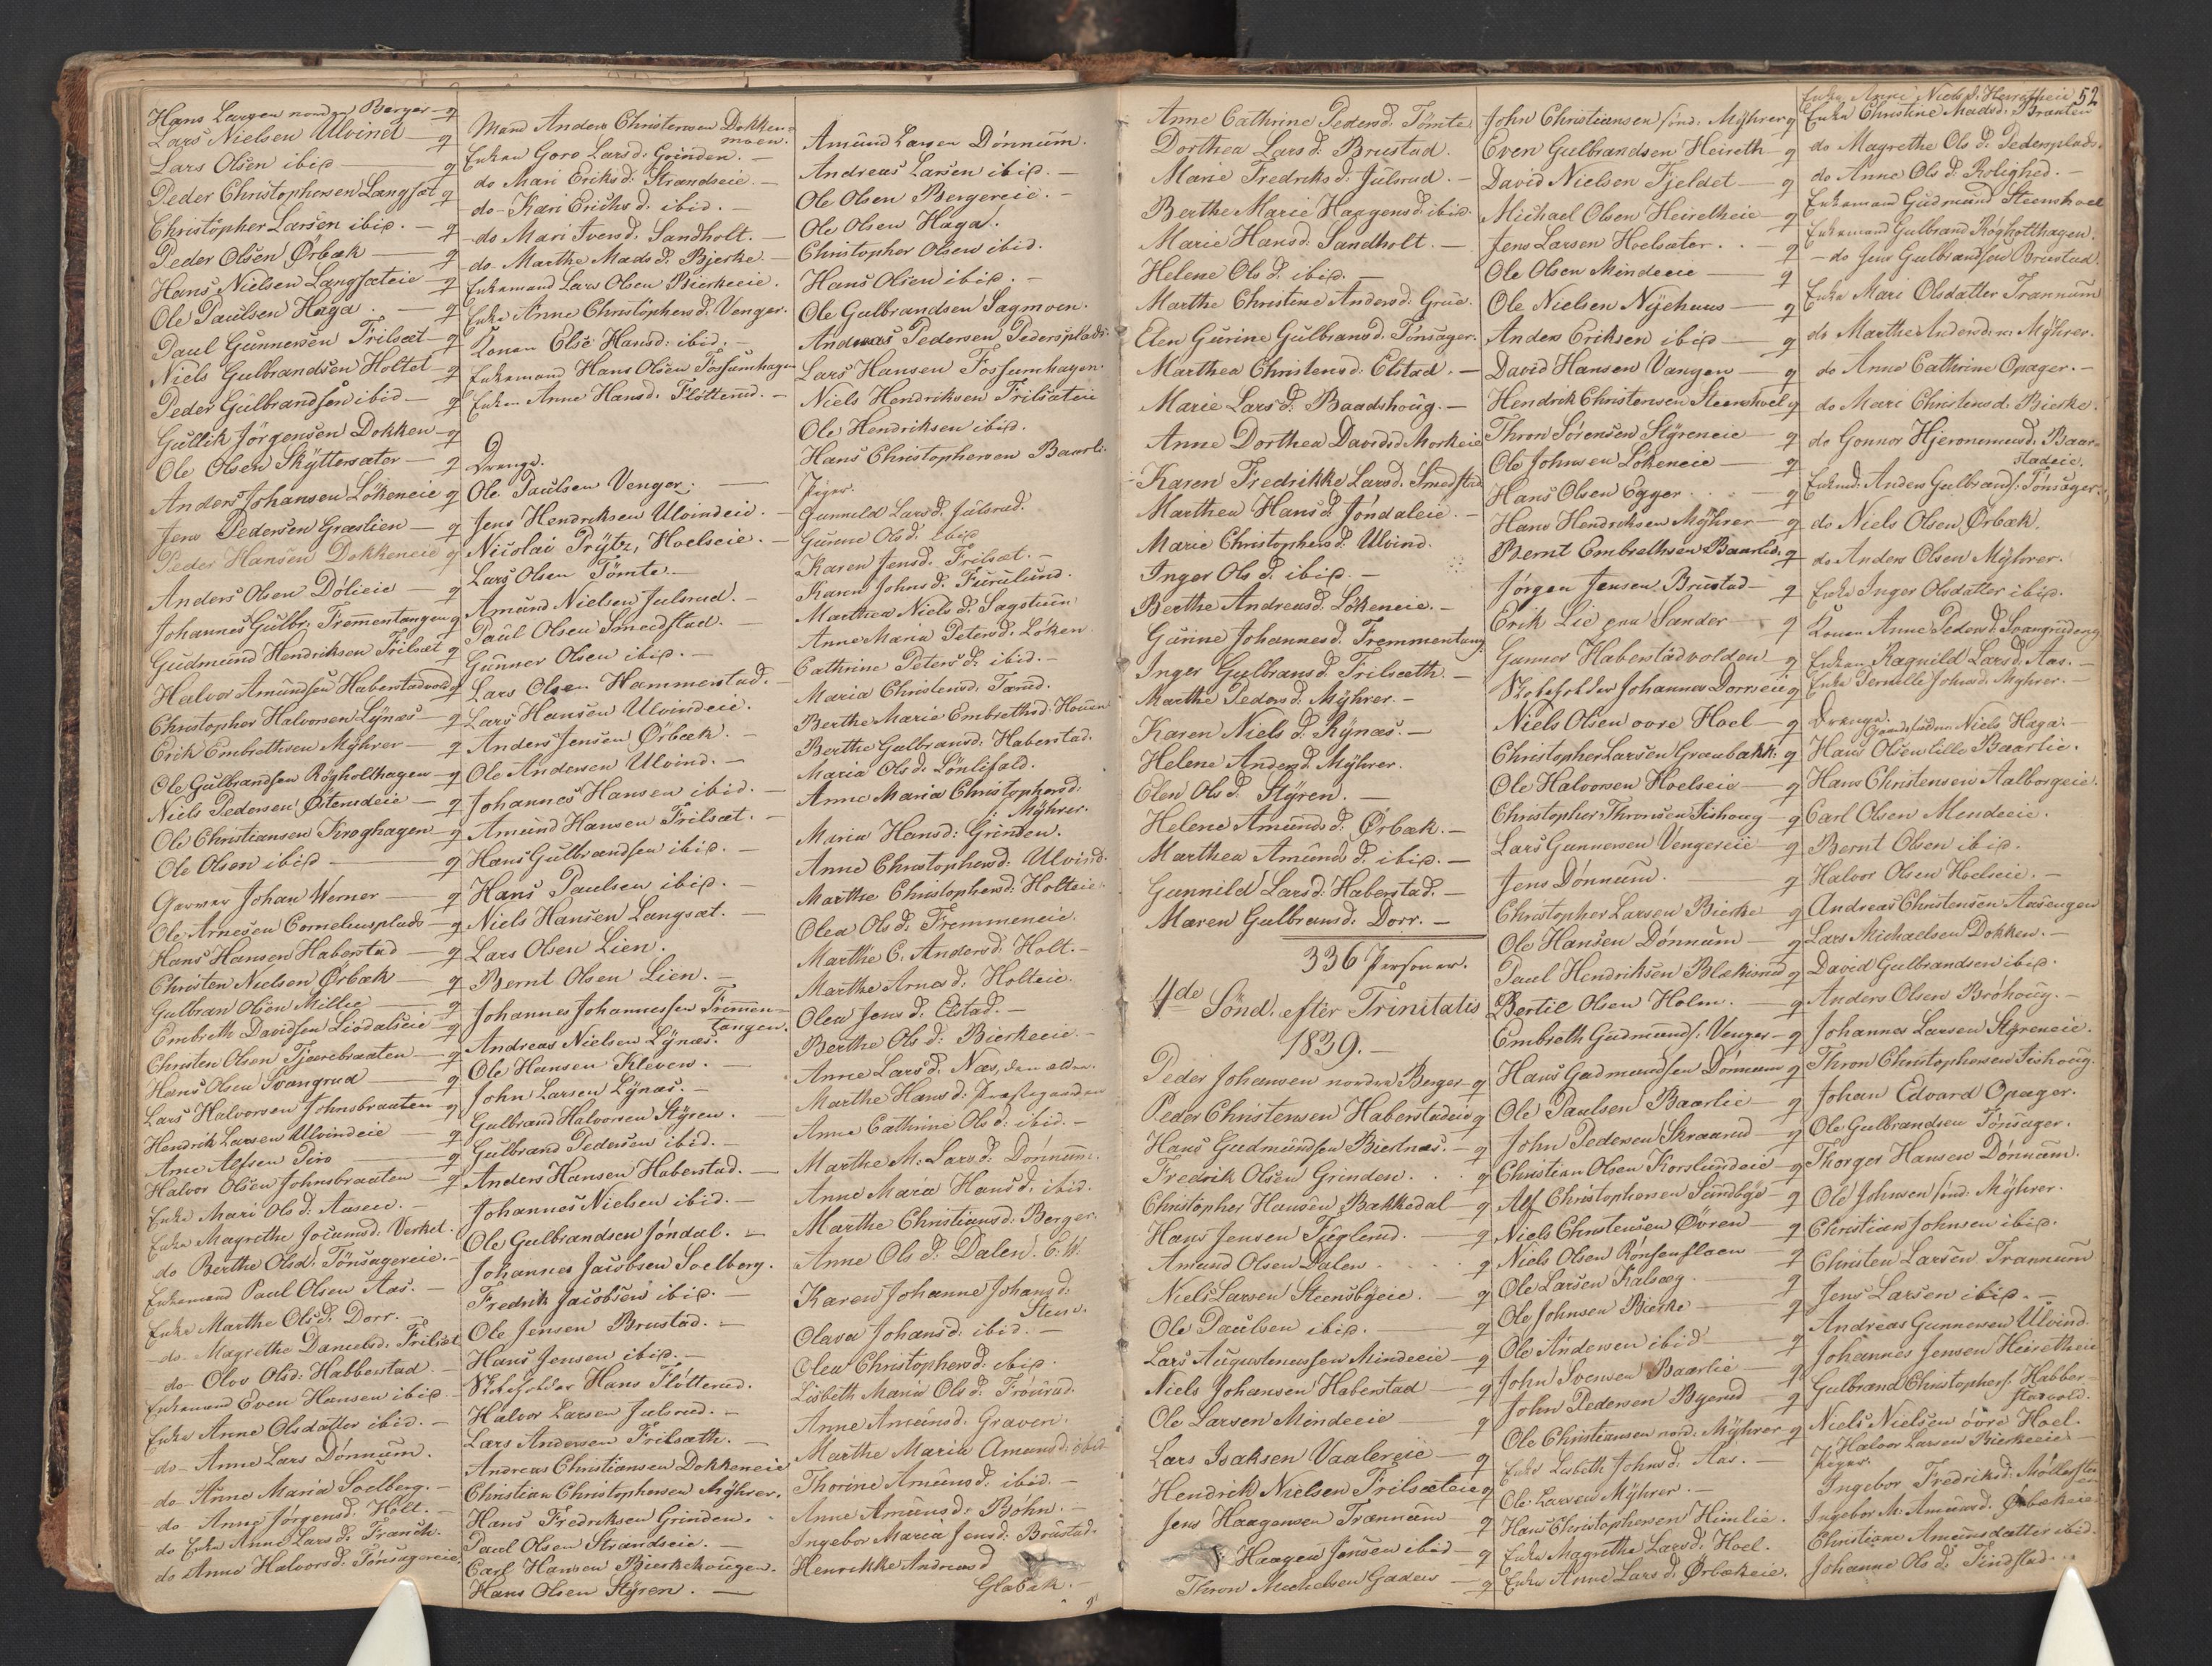 Hans Larsen nordre Berger q
Lars Nielsen Ulvind q
Lars Olsen ibid q
Peder Christophersen Langsæt q
Christopher Larsen ibid. q
Peder Olsen Ørbæk q
Hans Nielsen Langsæteie q
Ole Paulsen Haga q
Paul Gunnersen Frilsæt q
Niels Gulbrandsen Holtet q
Peder Gulbrandsen ibid q
Gullik Jörgensen Dokken q
Ole Olsen Skÿttersæter q
Anders Johansen Lökeneie q
Jens Pedersen Græslien q
Peder Hansen Dokkeneie q
Anders Olsen Dölieie q
Johannes Gulbr. Fremmentangen q
Gudmund Hendriksen Frilsæt q
Halvor Amundsen Haberstadvold q
Christopher Halvorsen Lÿnæs q
Erik Embrethsen Mÿhrer q
Ole Gulbrandsen Rögholthagen q
Niels Pedersen Østensdeie q
Ole Christiansen Kroghagen q
Ole Olsen ibid q
Garver Johan Werner q
Ole Arnesen Corneliusplads q
Hans Hansen Haberstad q
Christen Nielsen Ørbæk q
Gulbran Olsen Millie q
Embreth Davidsen Liodalseie q
Christen Olsen Tjærebraaten q
Hans Olsen Svangrud q
Lars Halvorsen Johnsbraaten q
Hendrik Larsen Ulvindeie q
Arne Alfsen Piro q
Halvor Olsen Johnsbraaten q
Enke Mari Ols d: Aasen.
Enke Magrethe Jocumsd. Verket.
do Berthe Olsd: Tönsagereie.
Enkemand Paul Olsen Aas.
Enke Marthe Olsd: Dorr.
do Magrethe Danielsd. Frilsæt
do Olov Olsd: Habberstad
Enkemand Even Hansen ibid
Enke Anne Olsdatter ibid.
do Anne Lars Dönnum.
do Anne Maria Soelberg.
do Anne Jörgensd. Holt.
do Enke Anne Larsd. Fransh.
do Anne Halvorsd. Tönsagereie.

Mand Anders Christensen Dokken-
moen.
Enken Goro Larsd: Grinden.
do Mari Eriksd: Strandseie.
do Kari Erichsd. ibid.
do Mari Ivensd. Sandholt.
do Marthe Madsd. Bjerke.
Enkemand Lars Olsen Bierkeeie.
Enke Anne Christophersd. Venger.
Konen Elie Hansd: ibid.
Enkemand Hans Olsen Fossumhagen
Enken Anne Hansd. Flötterud.
Drenge.
Ole Paulsen Venger.
Jens Hendriksen Ulvindeie.
Nicolai Prÿtz, Hoelseie.
Lars Olsen Tömte.
Amund Nielsen Julsrud.
Paul Olsen Smedstad.
Gunner Olsen ibid.
Lars Olsen Hammerstad.
Lars Hansen Ulvindeie.
Anders Jensen Ørbæk.
Ole Andersen Ulvind.
Johannes Hansen ibid.
Amund Hansen Frilsæt.
Hans Gulbrandsen ibid.
Hans Paulsen ibid.
Niels Hansen Langsæt.
Lars Olsen Lien.
Bernt Olsen Lien.
Johannes Johannessen Fremmen-
tangen.
Andreas Nielsen Lÿnæs.
Ole Hansen Kleven.
John Larsen Lÿnæs.
Gulbrand Halvorsen Stÿren.
Gulbrand Pedersen ibid.
Anders Hansen Haberstad.
Johannes Nielsen ibid.
Ole Gulbrandsen Jöndal.
Johannes Jacobsen Soelberg.
Fredrik Jacobsen ibid.
Ole Jensen Brustad.
Hans Jensen ibid.
Skoleholder Hans Flötterud.
Halvor Larsen Julsrud.
Lars Andersen Frilsæth.
Andreas Christiansen Dokkeneie
Christian Christophersen Mÿhrer.
Hans Fredriksen Grinden.
Paul Olsen Strandseie.
Carl Hansen Bierkehougen.
Hans Olsen Stÿren.

Amund Larsen Dönnum.
Andreas Larsen ibid.
Ole Olsen Bergereie.
Ole Olsen Haga.
Christopher Olsen ibid.
Hans Olsen ibid.
Ole Gulbrandsen Sagmoen.
Andreas Pedersen Pedersplads.
Lars Hansen Fossumhagen.
Niels Hendriksen Frilsæteie
Ole Hendriksen ibid.
Hans Christophersen Baarli.
Piger.
Gunnild Larsd. Julsrud.
Gurine Olsd. ibid
Karen Jensd. Frilsæt.
Karen Johnsd: Furulund.
Marthea Nielsd: Sagstuen
Anne Maria Petersd. Löken
Cathrine Petersd. ibid.
Maria Christensd. Tærud.
Berthe Marie Embrethsd. Houen
Berthe Gulbransd. Haberstad.
Maria Olsd. Lönlifald.
Anne Maria Christophersd.
Mÿhrer.
Maria Hansd: Grinden.
Anne Christophersd: Ulvind.
Marthe Christophersd: Holteie.
Olea Olsd. Fremmeneie.
Marthe C. Andersd. Holt.
Marthe Arnesd: Holteie.
Olea Jensd. Elstad.
Berthe Olsd: Bierkeeie.
Anne Larsd. Næs, den ældre.
Marthe Hansd: Præstegaarden
Anne Cathrine Olsd. ibid.
Marthe M. Larsd. Dönnum.
Anne Maria Hansd. ibid.
Marthe Christiansd: Berger.
Anne Olsd. Dalen.
Karen Johanne Johansd:
Steen.
Olava Johansd: ibid.
Olea Christophersd: ibid.
Lisbeth Maria Olsd. Trourud.
Anne Amundsd. Graven.
Marthe Maria Amundsd. ibid
Thorine Amundsd. ibid.
Anne Amundsd: Böhn.
Ingebor Maria Jensd: Brustad.
Henrikke Andreasd
Globak.

Anne Cathrine Pedersd. Tömte
Dorthea Larsd: Brustad.
Marie Fredriksd: Julsrud.
Berthe Marie Haagensd. ibid.
Marie Hansd. Sandholt.
Helene Olsd. ibid.
Marthe Christine Andersd. Grue.
Elen Gurine Gulbransd. Tönsager.
Marthea Christensd. Elstad.
Marie Larsd. Baadshoug.
Anne Dorthea Davidsd Morkeie
Karen Fredrikke Larsd. Smedstad
Marthea Hansd. Jöndaleie.
Marie Christophersd. Ulvind.
Inger Olsd. ibid.
Berthe Andreasd. Lökeneie.
Gurine Johannesd. Fremmentang.
Inger Gulbransd. Frilsæth.
Marthe Pedersd. Mÿhrer.
Karen Nielsd. Rÿnæs.
Helene Andersd. Mÿhrer.
Elen Olsd. Stÿren.
Helene Amundsd. Ørbæk.
Marthea Amundsd. ibid.
Gunnild Larsd: Haberstad.
Maren Gulbransd. Dorr.
336 Personer.
4de Sönd. efter Trinitatis
1839.
Peder Johansen nordre Berger q
Peder Christensen Haberstadeie q
Hans Gudmundsen Biertnæs. q
Fredrik Olsen Grinden. q
Christopher Hansen Bakkedal q
Hans Jensen Tieglerud. q
Amund Olsen Dalen q
Niels Larsen Steensbÿeie. q
Ole Paulsen ibid. q
Lars Augustinussen Mindeeie q
Niels Johansen Haberstad q
Ole Larsen Mindeeie q
Lars Isaksen Vaalereie q
Hendrik Nielsen Frilsæteie q
Jens Haagensen Trannum q
Haagen Jensen ibid q
Thron Mechelsen Gaden q

John Christiansen sönd. Mÿhrer q
Even Gulbrandsen Heireth q
David Nielsen Fjeldet q
Michael Olsen Heiretheie q
Jens Larsen Hoelsæter q
Ole Olsen Mindeeie q
Ole Nielsen Nÿehuus q
Anders Eriksen ibid q
David Hansen Vangen q
Hendrik Christensen Steenshoel q
Thron Sörensen Stÿreneie q
Ole Johnsen Lökeneie q
Hans Olsen Egger q
Hans Hendriksen Mÿhrer q
Bernt Embrethsen Baarlid. q
Jörgen Jensen Brustad q
Erik Lie paa Sander q
Gunner Haberstadvolden q
Skoleholder Johannes Dorrseie q
Niels Olsen övre Hoel q
Christopher Larsen Graubakk. q
Ole Halvorsen Hoelseie q
Christopher Thronsen Fishoug q
Lars Gunnersen Vengereie q
Jens Dönnum. q
Christopher Larsen Bierke q
Ole Hansen Dönnum q
Paul Hendriksen Blækisrud q
Bertil Olsen Holm. q
Embreth Gudmunds: Venger q
Hans Gudmundsen Dönnum q
Ole Paulsen Baarlie q
John Pedersen Skraarud q
Christian Olsen Korslundeie q
Alf Christophersen Sundbÿe q
Niels Christensen Øvren q
Niels Olsen Rönsenfloen q
Ole Larsen Kalsæg. q
Ole Johnsen Bierke q
Ole Andersen ibid q
John Svensen Baarlie q
John Pedersen Byerud q
Ole Christiansen nord. Mÿhrer q
Enke Lisbeth Johnsd: Aas.
Ole Larsen Mÿhrer.
Hans Christophersen Himlie.
Enke Magrethe Larsd. Hoel.
Enke Anne Larsd. Ørbækeie.

52
Enke Anne Nielsd. Heiretheie
Enke Christine Madsd. Braaten
do Magrethe Olsd. Pedersplads.
do Anne Olsd. Rolighed.
Enkemand Gudmund Steenshoel
Enkemand Gulbrand Rögholthagen.
do Jens Gulbrandsen Brustad.
Enke Mari Olsdatter Trannum
do Marthe Andersd. Mÿhrer.
do Anne Cathrine Opager.
do Mari Christensd. Bierke.
do Gonnor Hjeronemusd. Baar-
stadeie.
Enkmd: Anders Gulbrands. Tönsager.
do Niels Olsen Ørbæk.
do Anders Olsen Mÿhrer.
Enke Inger Olsdatter ibid.
Konen Anne Pedersd. Svangrudeng
Enken Ragnild Larsd. Aas.
Enke Pernille Johnsd. Mÿhrer.
Drenge.
Gaardsfaderen Niels Haga.
Hans Olsen lille Baarlie.
Hans Christensen Aalborgeie.
Carl Olsen Mendeeie.
Bernt Olsen ibid.
Halvor Olsen Hoelseie.
Andreas Christensen Aasengen
Lars Michaelsen Dokken.
David Gulbrandsen ibid.
Anders Olsen Bröhoug.
Johannes Larsen Stÿreneie.
Thron Christophersen Fishoug.
Johan Edvard Opager.
Ole Gulbrandsen Tönsager.
Thorger Hansen Dönnum.
Ole Johnsen sönd: Mÿhrer.
Christian Johnsen ibid.
Christen Larsen Trannum
Jens Larsen ibid.
Andreas Gunnersen Ulvind.
Johannes Jensen Heiretheie
Gulbrand Christophers. Habber-
stadvold.
Niels Nielsen övre Hoel.
Halvor Larsen Bierkeeie
Piger.
Ingebor Fredriksd. Möllerstu-
Ingebor M. Amundsd. Ørbækeie.
Christiane Amundsdatter ibid.
Johanne Olsd. Findstad.